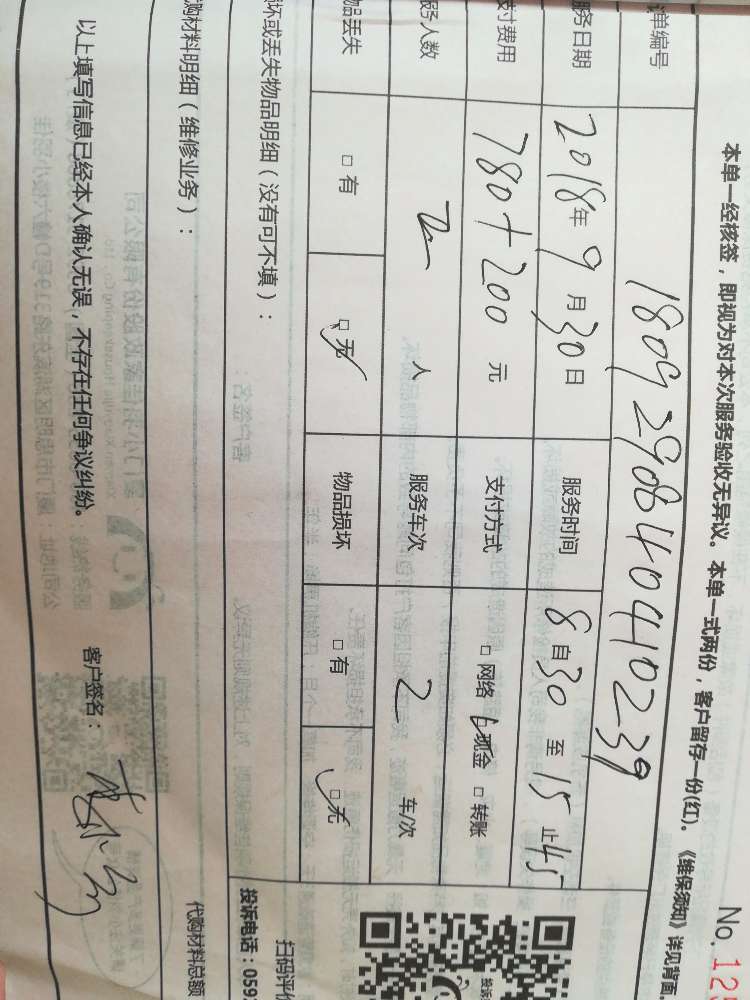 No. 12
本单一经核签，即视为对本次服务验收无异议。本单一式两份，客户留存一份(红)。《维保须知》详见背面
单编号 1809298840410239
服务日期 2018年9月30日 服务时间 8自30至15止45
支付费用 780+200 元 支付方式 □网络 ✓现金 □转账
服务人数 2 人 服务车次 2 车/次
物品丢失 □有 ☑无 物品损坏 □有 ☑无
坏或丢失物品明细（没有可不填）：
购材料明细（维修业务）：
代购材料总额
以上填写信息已经本人确认无误，不存在任何争议纠纷。 客户签名：
扫码评价
投诉电话：059